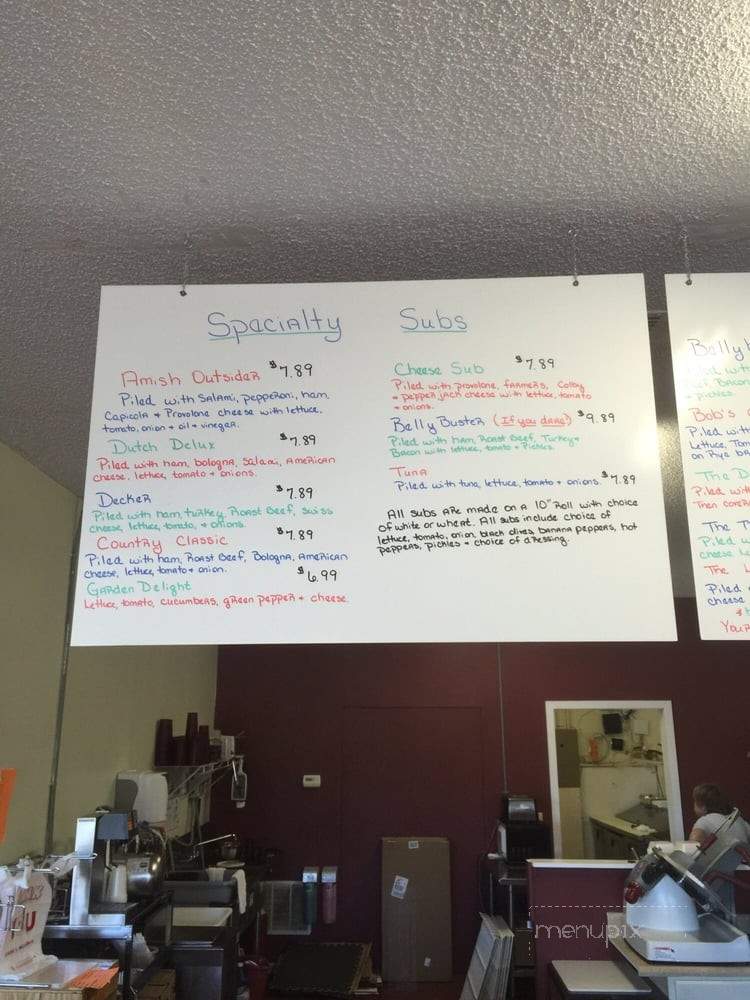 Specialty Subs
Amish Outsider $7.89
Piled with Salami, pepperoni, ham,
Capicola + Provolone cheese with lettuce,
tomato, onion + oil + vinegar.
Dutch Delux $7.89
Piled with ham, bologna, Salami, American
cheese, lettuce, tomato + onions.
Decker $7.89
Piled with ham, turkey, Roast Beef, Swiss
cheese, lettuce, tomato, + onions.
Country Classic $7.89
Piled with ham, Roast Beef, Bologna, American
cheese, lettuce, tomato + onion.
Garden Delight $6.99
Lettuce, tomato, cucumbers, green pepper + cheese.
Cheese Sub $7.89
Piled with provolone, farmers, Colby
+ pepper jack cheese with lettuce, tomato
+ onions.
Belly Buster (If you dare!) $9.89
Piled with ham, Roast Beef, Turkey +
Bacon with lettuce, tomato + Pickles.
Tuna
Piled with tuna, lettuce, tomato + onions. $7.89
All subs are made on a 10" Roll with choice
of white or wheat. All subs include choice of
lettuce, tomato, onion, black olives, banana peppers, hot
peppers, pickles + choice of dressing.
Belly
Piled with
Bacon
+ pickles.
Bob's
Piled with
Lettuce, Tom
on Rye br
The D
Piled wit
Then cover
The T
Piled w
cheese le
The
Piled
cheese
Your
menupix